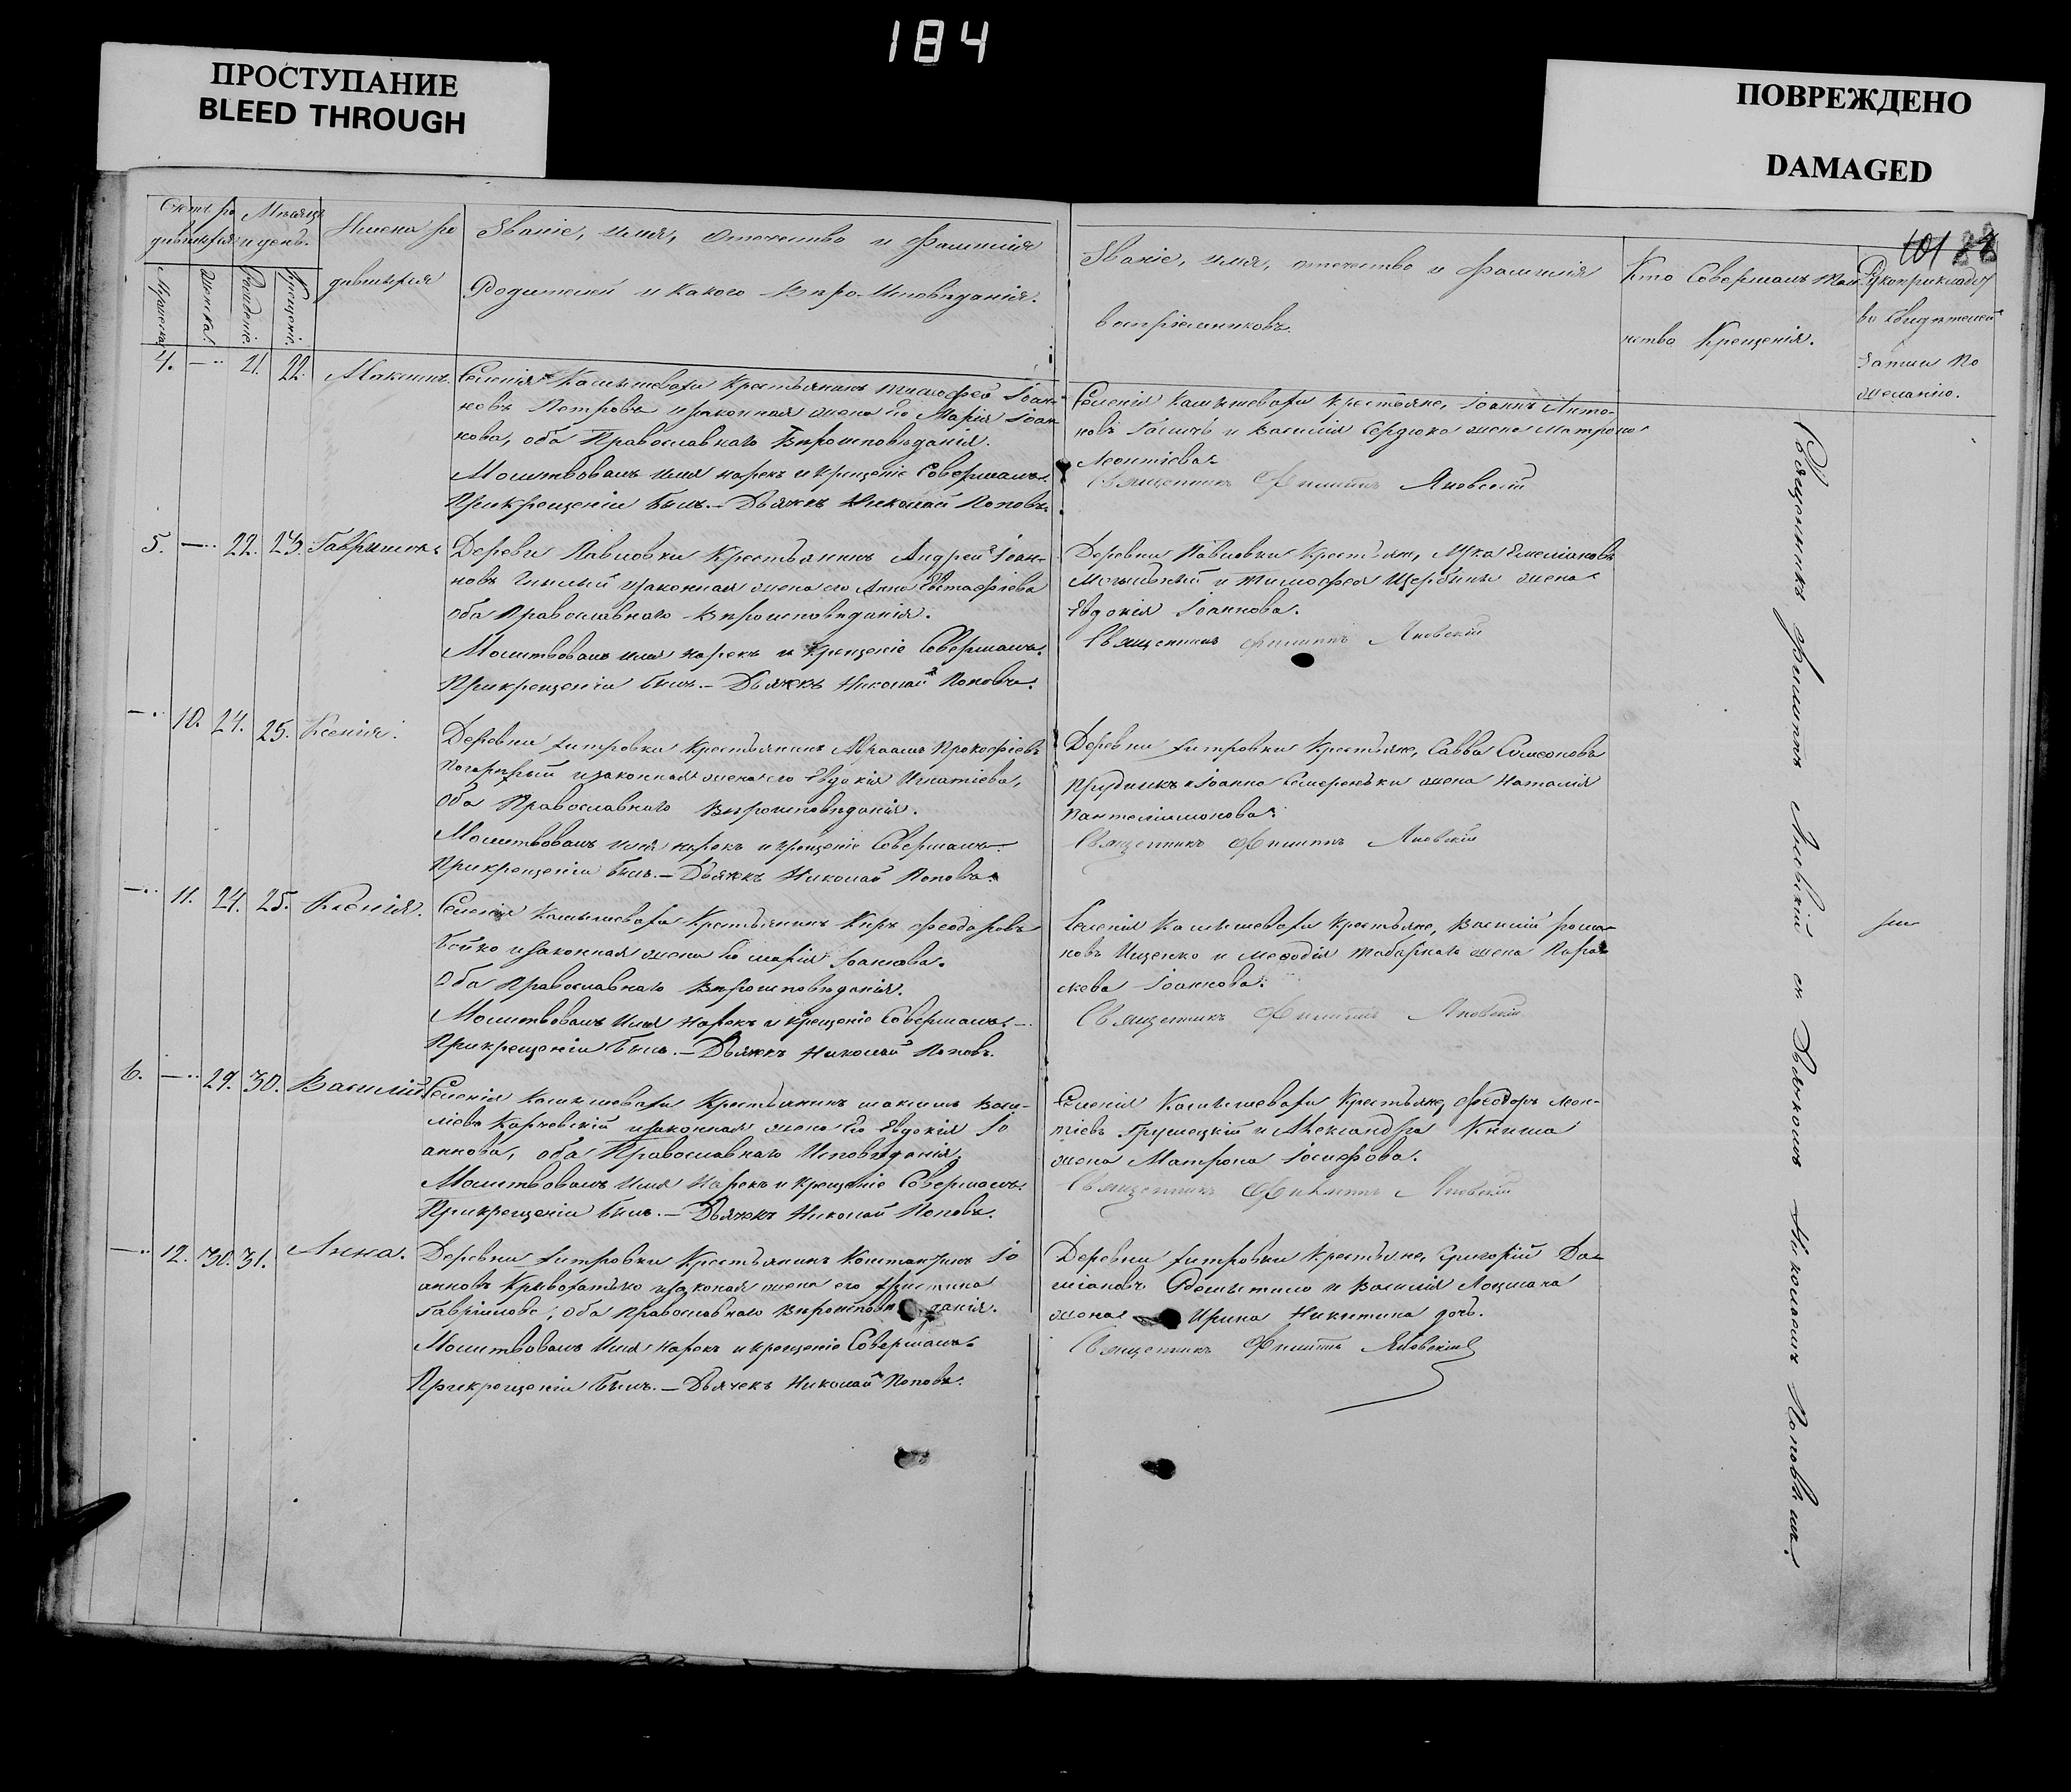 184
ПРОСТУПАНИЕ
BLEED THROUGH
ПОВРЕЖДЕНО
DAMAGED
101
Счетъ ро
дившихся
Мѣсяцъ
и день.
Имена ро
дившихся
Званіе, имя, отечество и фамилія
Родителей и какого вѣроисповѣданія.
Званіе, имя, отечество и фамилія
воспріемниковъ.
Кто совершалъ таин
ство Крещенія.
Рукоприкладст
во свидѣтелей
записи по
желанію.
Мужеска.
Женска.
Рожденіе.
Крещеніе.
4. — 21. 22. Максимъ.
Селенія Камышеватки Крестьянинъ Тимофей Іоан-
новъ Петровъ и законная жена его Марія Іоан
нова, оба Православнаго Вѣроисповѣданія.
Молитвовалъ имя нарекъ и крещеніе Совершалъ.
При крещеніи былъ.— Дьячекъ Николай Поповъ.
Селенія Камышеватки Крестьяне, Іоаннъ Анто-
новъ и Василія Сердюка жена Матрона
Леонтіева.
Священникъ Филиппъ Яновскій
5. — 22. 23. Гавріилъ.
Деревни Павловки Крестьянинъ Андрей Іоан-
новъ и законная жена его Анна Евстафіева
оба Православнаго Вѣроисповѣданія.
Молитвовалъ имя нарекъ и крещеніе Совершалъ.
При крещеніи былъ.— Дьячекъ Николай Поповъ.
Деревни Павловки Крестьяне, Лука Емеліановъ
и Тимофея Щербины жена
Евдокія Іоаннова.
Священникъ Филиппъ Яновскій
— 10. 24. 25. Ксенія.
Деревни Хитровки Крестьянинъ Авраамъ Прокофіевъ
Погорѣлый и законная жена его Евдокія Игнатіева,
Оба Православнаго Вѣроисповѣданія.
Молитвовалъ имя нарекъ и крещеніе Совершалъ.
При крещеніи былъ.— Дьячекъ Николай Поповъ.
Деревни Хитровки Крестьяне, Савва Симеоновъ
Прудникъ и Іоанна Семереньки жена Наталія
Пантелимонова.
Священникъ Филиппъ Яновскій
— 11. 24. 25. Ксенія.
Селенія Камышеватки Крестьянинъ Киръ Феодоровъ
Бойко и законная жена его Марія Іоаннова.
Оба Православнаго Вѣроисповѣданія.
Молитвовалъ имя нарекъ и крещеніе Совершалъ.—
При крещеніи былъ.— Дьячекъ Николай Поповъ.
Селенія Камышеватки Крестьяне, Василій Рома-
новъ Ищенко и Мефодія жена Парас
кева Іоаннова.
Священникъ Филиппъ Яновскій
6. — 29. 30. Василій.
Селенія Камышеватки Крестьянинъ Максимъ Васи-
ліевъ Карчевскій и законная жена его Евдокія Іо
аннова, оба Православнаго Исповѣданія.
Молитвовалъ имя нарекъ и крещеніе Совершалъ.
При крещеніи былъ.— Дьячекъ Николай Поповъ.
Селенія Камышеватки Крестьяне, Феодоръ Леон-
тіевъ Грушецкій и Александра Книша
жена Матрона Іосифова.
Священникъ Филиппъ Яновскій
— 12. 30. 31. Анна.
Деревни Хитровки Крестьянинъ Константинъ Іо
анновъ и законая жена его Христина
Гавріилова, оба Православнаго Вѣроисповѣданія.
Молитвовалъ имя нарекъ и крещеніе Совершалъ.
При крещеніи былъ.— Дьячекъ Николай Поповъ.
Деревни Хитровки Крестьяне, Григорій Да-
міановъ и Василія Лоцмана
жена Ирина Никитина дочь.
Священникъ Филиппъ Яновскій
Священникъ Филиппъ Яновскій съ Дьячкомъ Николаемъ Поповымъ.